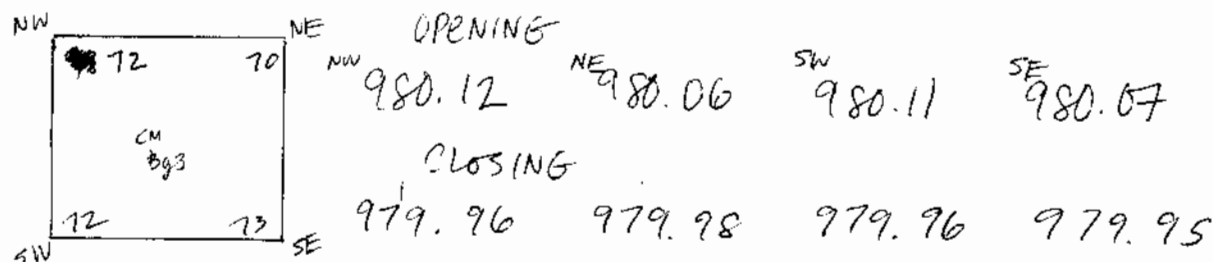 NW NE
72 70
CM
Bg3
72 73
SW SE
OPENING
NW 980.12 NE 980.06 SW 980.11 SE 980.07
CLOSING
979.96 979.98 979.96 979.95